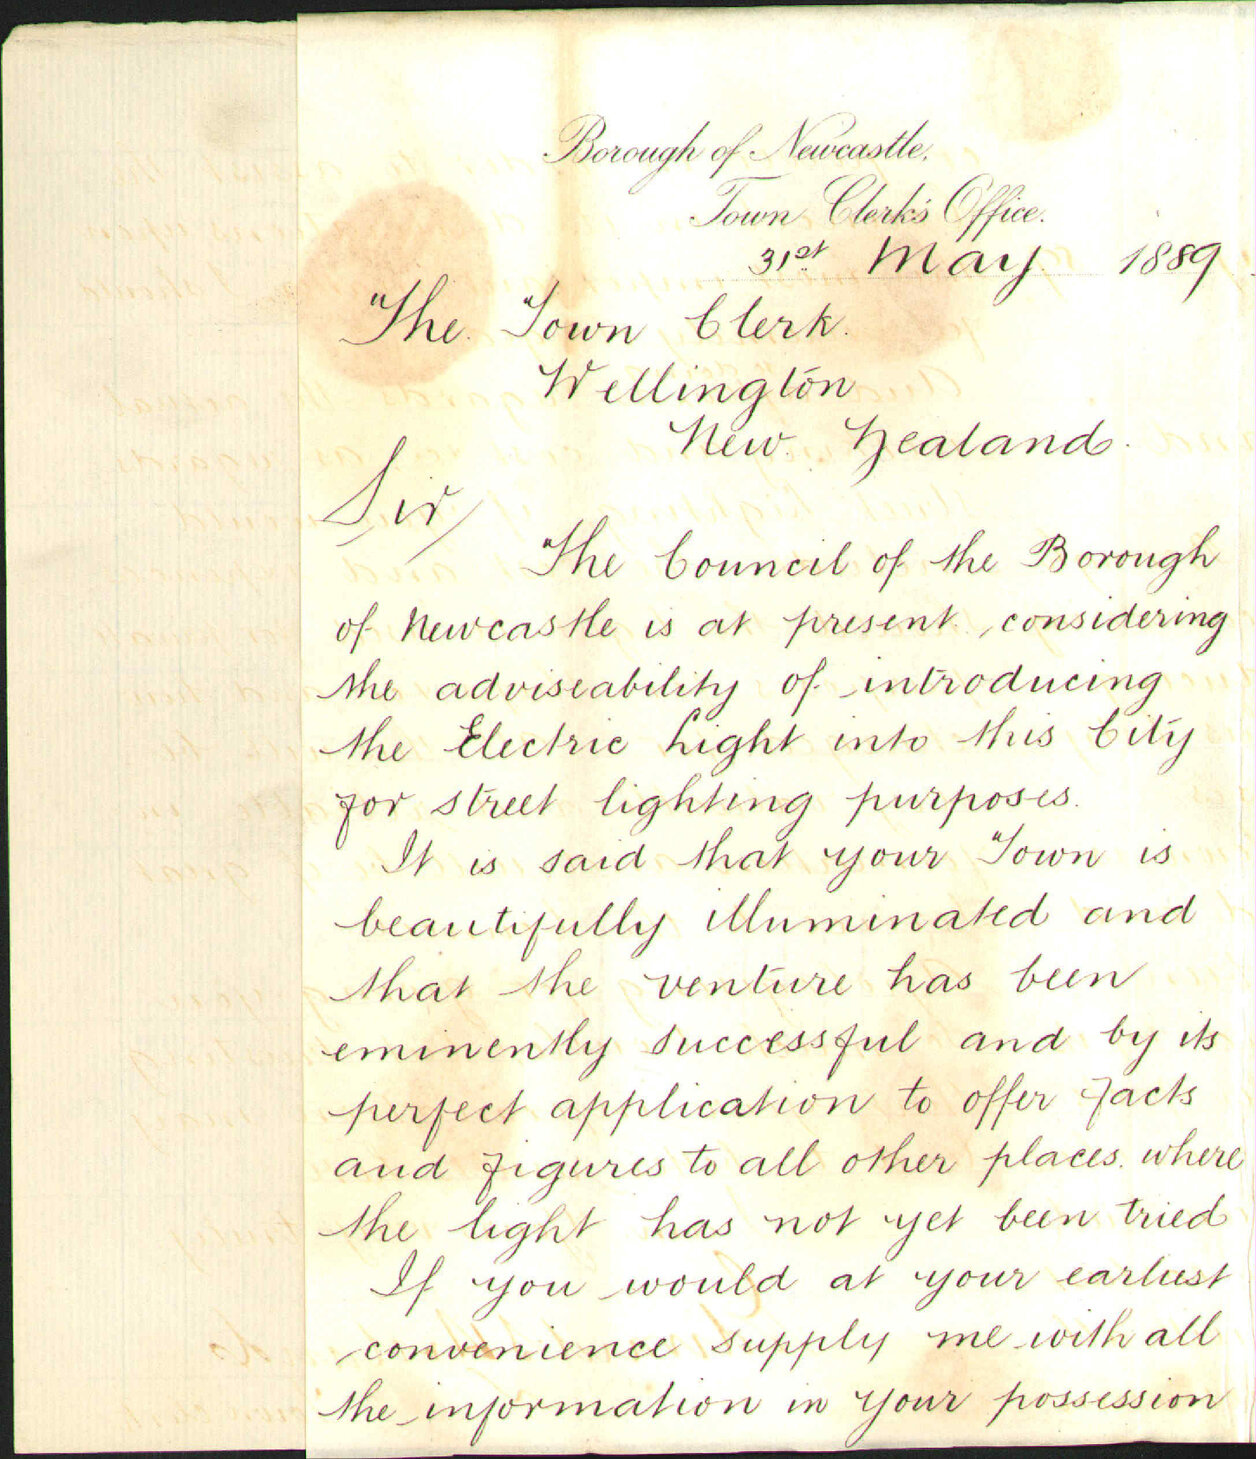 Borough of Newcastle.
Town Clerk's Office.
31st May 1889
The Town Clerk.
Wellington
New Zealand.
Sir
The Council of the Borough
of Newcastle is at present considering
the adviseability of introducing
the Electric Light into this City
for street lighting purposes.
It is said that your Town is
beautifully illuminated and
that the venture has been
eminently successful and by its
perfect application to offer facts
and figures to all other places where
the light has not yet been tried
If you would at your earliest
convenience supply me with all
the information in your possession